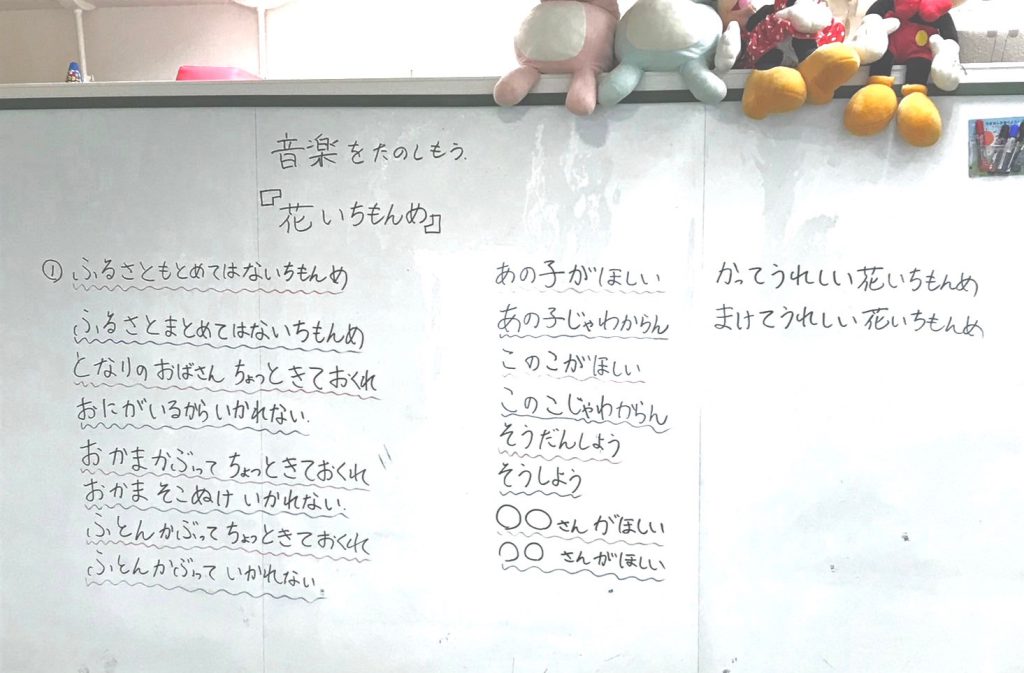 音楽をたのしもう.
『花いちもんめ』
① ふるさともとめてはないちもんめ
ふるさとまとめてはないちもんめ
となりのおばさん ちょっときておくれ
おにがいるから いかれない.
おかまかぶって ちょっときておくれ
おかま そこぬけ いかれない.
ふとんかぶってちょっときておくれ
ふとんかぶって いかれない.
あの子がほしい
あの子じゃわからん
このこがほしい
このこじゃわからん
そうだんしよう
そうしよう
○○さんがほしい
○○さんがほしい
かってうれしい花いちもんめ
まけてうれしい花いちもんめ